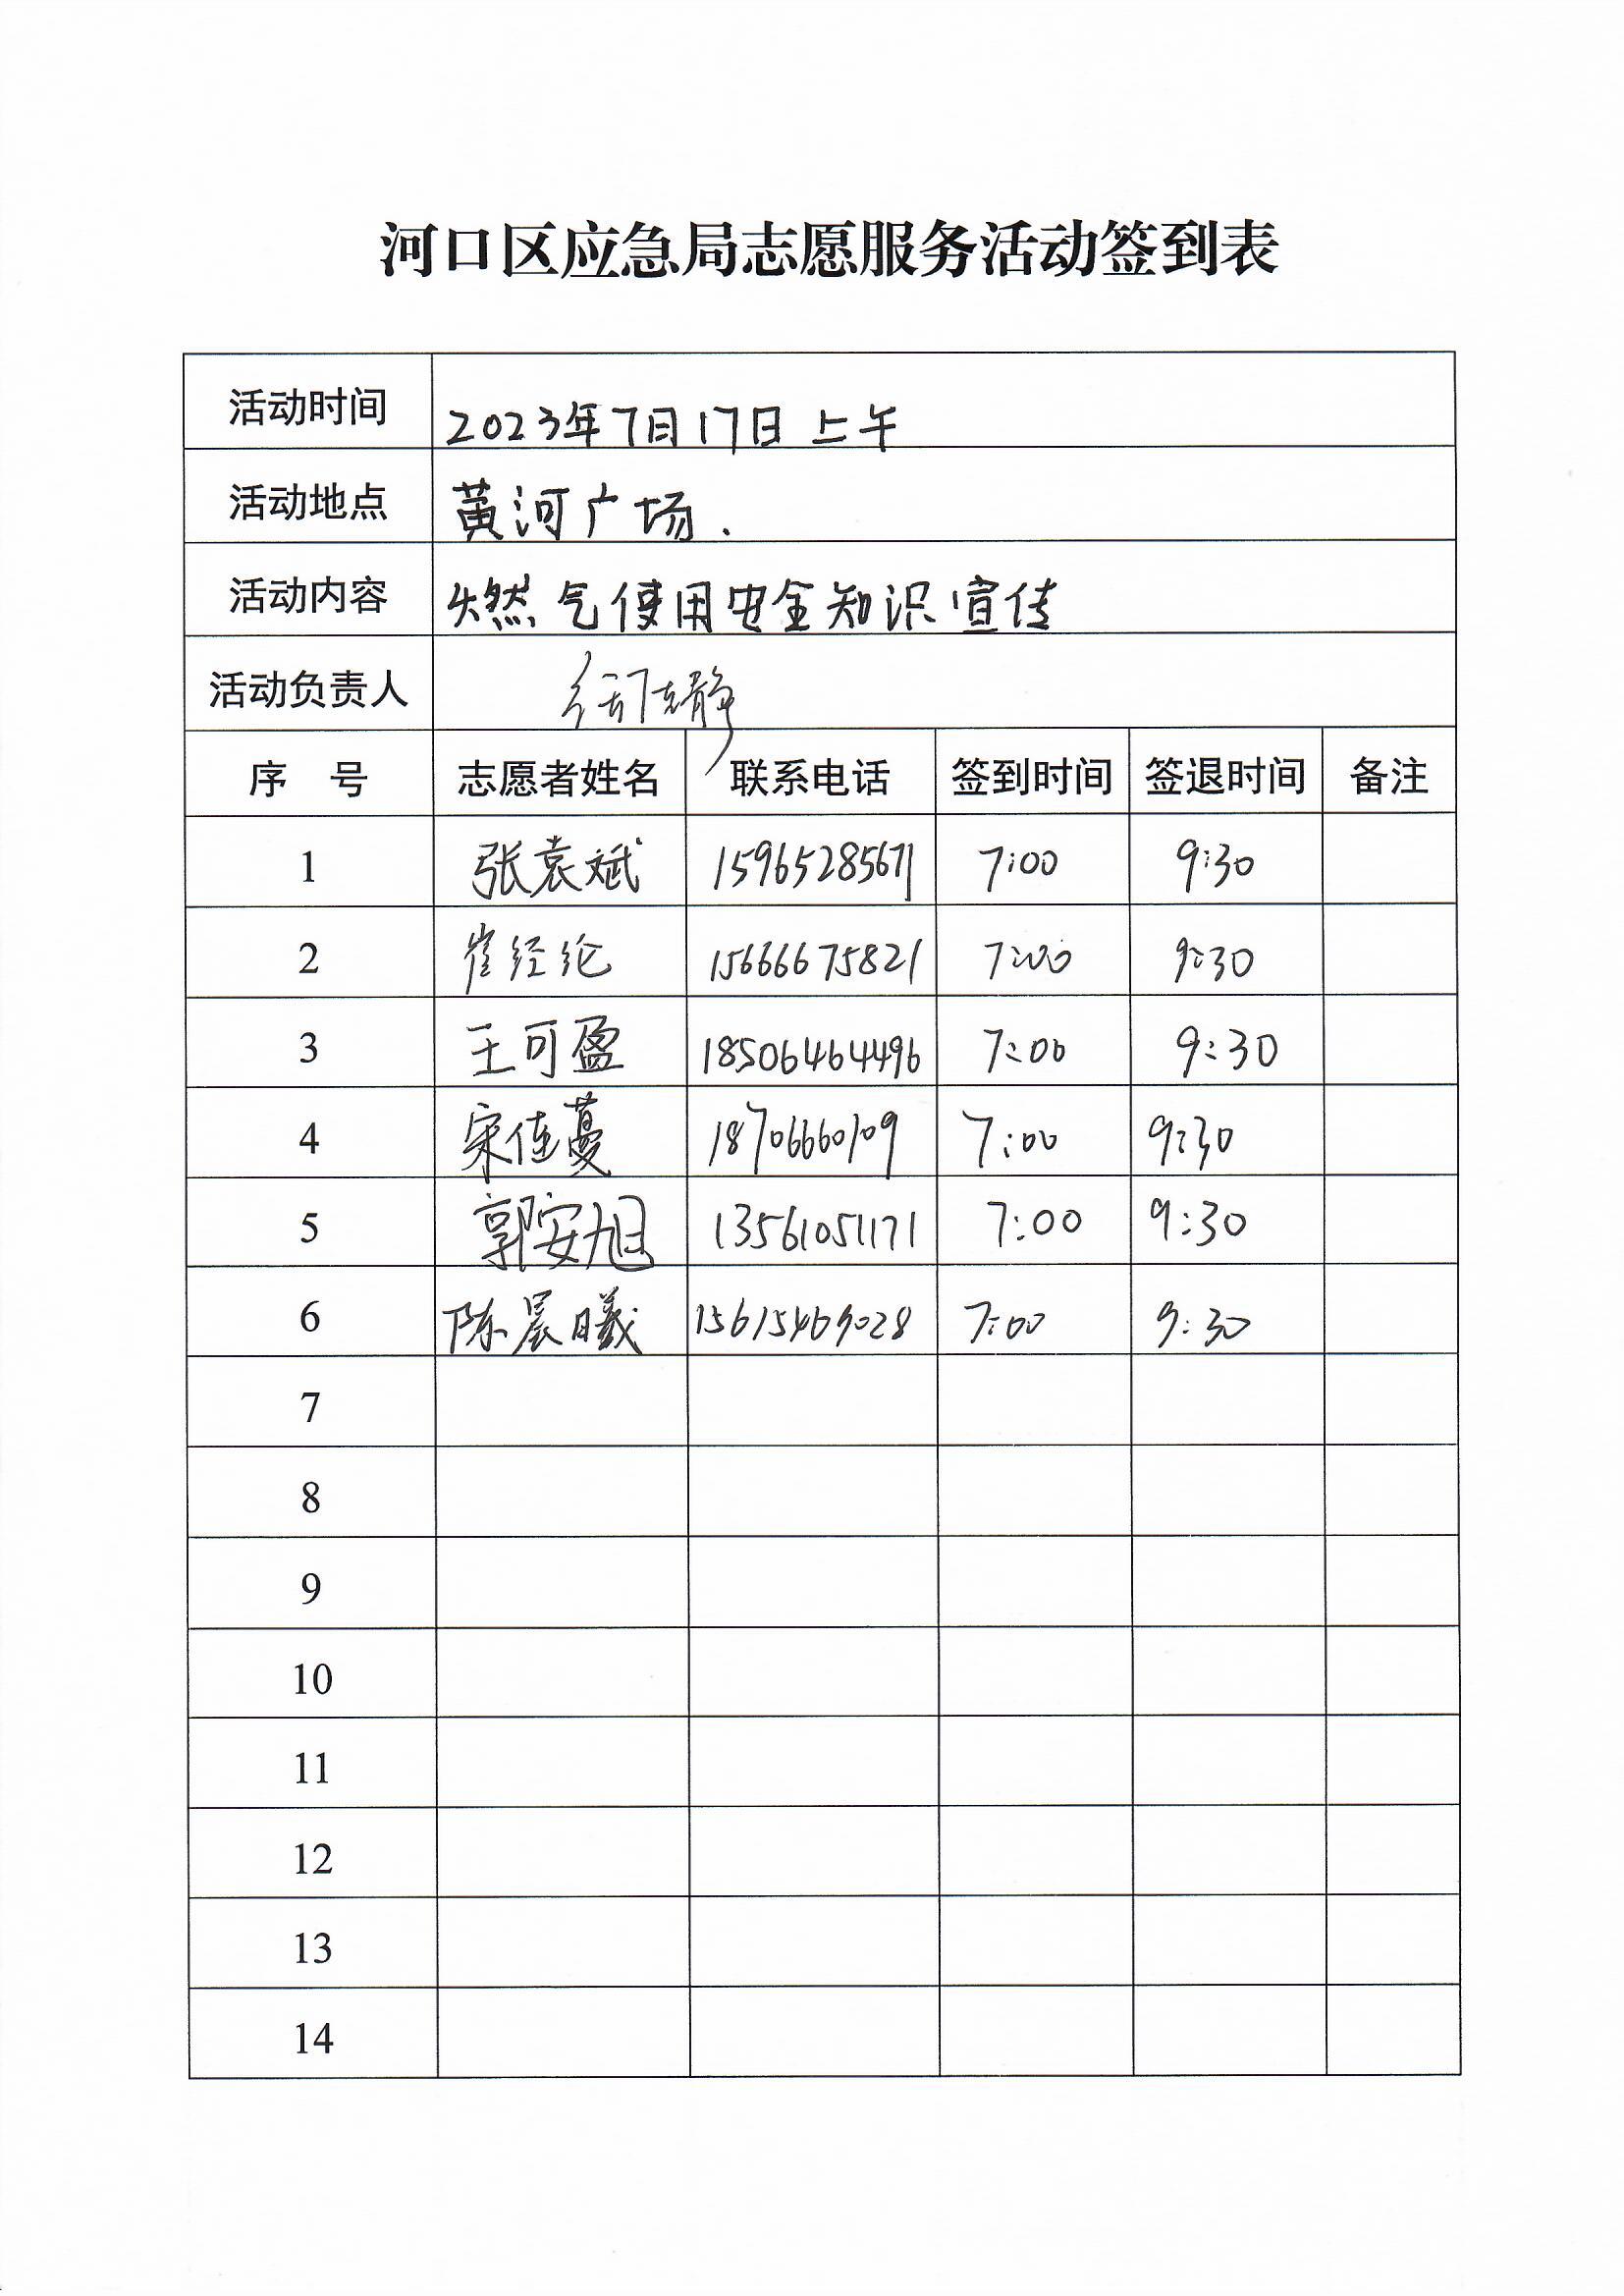 河口区应急局志愿服务活动签到表
活动时间 2023年7月17日 上午
活动地点 黄河广场.
活动内容 燃气使用安全知识宣传
活动负责人
序 号 志愿者姓名 联系电话 签到时间 签退时间 备注
1 张袁斌 15965285671 7:00 9:30
2 崔经纶 15666675821 7:00 9:30
3 王可盈 18506464496 7:00 9:30
4 宋佳蔓 18706660109 7:00 9:30
5 郭安旭 13561051171 7:00 9:30
6 陈晨曦 15615469028 7:00 9:30
7
8
9
10
11
12
13
14